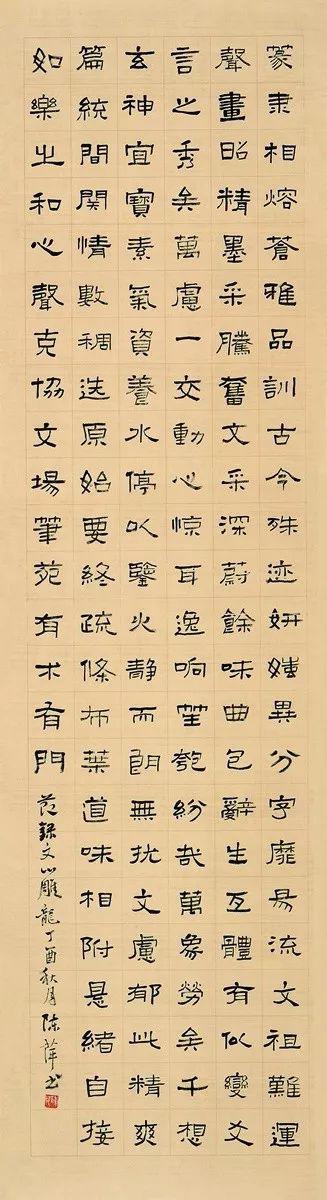 篆隶相熔蒼雅品訓古今殊迹妍媸異分字靡易流文祖難運
聲畫昭精墨采騰奮文采深蔚餘味曲包辭生互體有似變爻
言之秀矣萬慮一交動心惊耳逸响笙匏紛哉萬象勞矣千想
玄神宜寶素氣資養水停以鑒火静而朗無扰文慮郁此精爽
篇統間関情數稠迭原始要終疏條布葉道味相附悬緒自接
如樂之和心聲克協文場筆苑有术有門
節錄文心雕龍丁酉秋月陈萍书